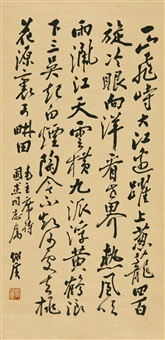 一山飛峙大江邊躍上葱蘢四百
旋冷眼向洋看世界熱風吹
雨灑江天雲橫九派浮黃鶴浪
下三吳起白煙陶令不知何處去桃
花源裏可畊田
毛主席詩
同志屬